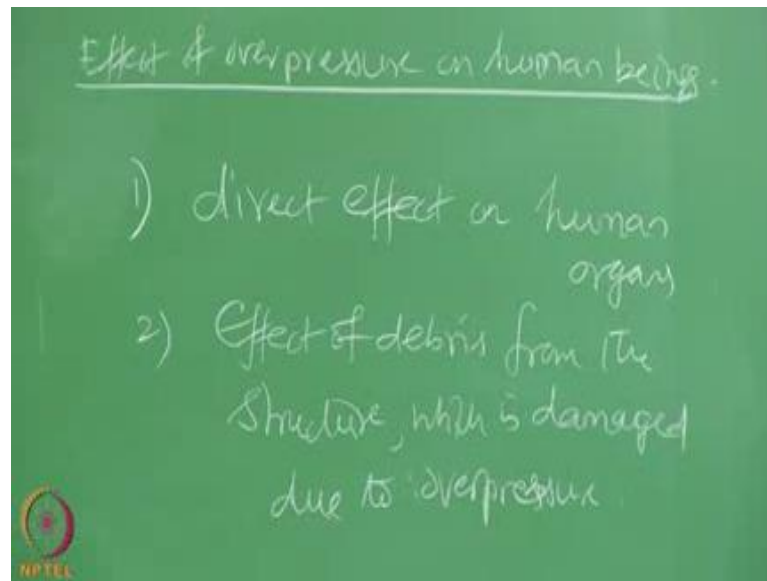 Effect of overpressure on human beings.
1) direct effect on human
organs
2) Effect of debris from the
structure, which is damaged
due to overpressure
NPTEL